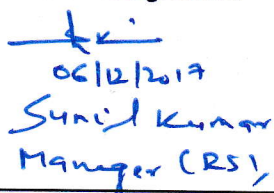 06/12/2017
Sunil Kumar
Manager (RS),